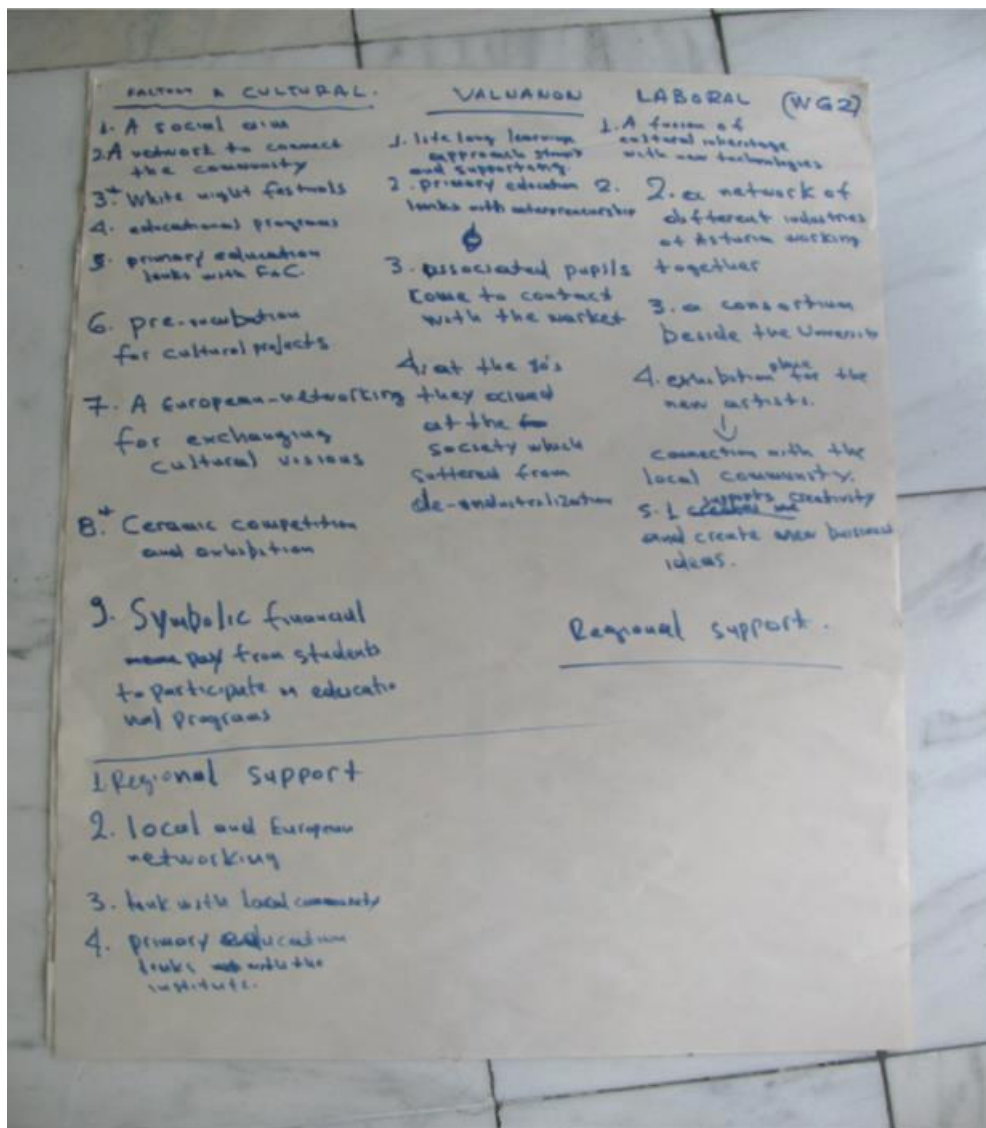 FACTORY A CULTURAL.
1. A social aim
2. A network to connect
the community
3.* White night festivals
4. educational programs
5. primary education
links with FAC.
6. pre-incubation
for cultural projects
7. A European-networking
for exchanging
cultural visions
8.* Ceramic competition
and exhibition
9. Symbolic financial
pay from students
to participate in educatio
nal programs
1 Regional support
2. local and European
networking
3. link with local community
4. primary education
links with the
institute.
VALNANON
1. life long learning
approach start
and supporting
2. primary education
links with enterpreneurship
3. associated pupils
come to contact
with the market
4. at the 90's
they
at the
society which
suffered from
de-industrilization
LABORAL (WG2)
1. A fusion of
cultural inheritage
with new technologies
2.
2. a network of
different industries
of Asturia working
together
3. a consortium
beside the University
4. exhibition place for the
new artists.
connection with the
local community.
5. supports creativity
and create new business
ideas.
Regional support.